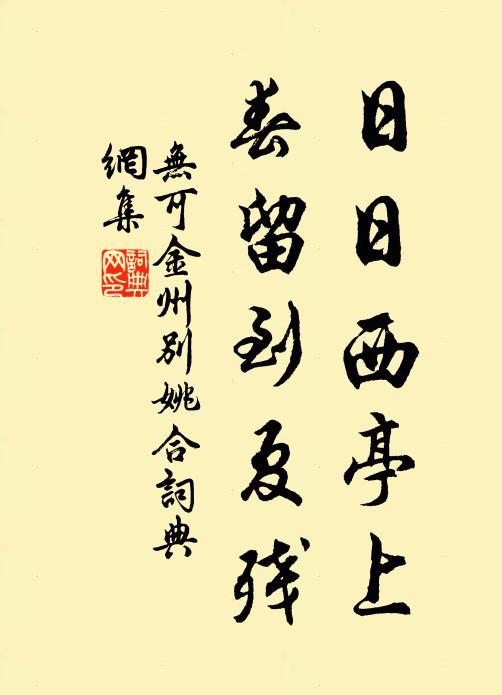 日日西亭上
春留到夏残
無可金州別姚合詞典
網集
詞典
网印